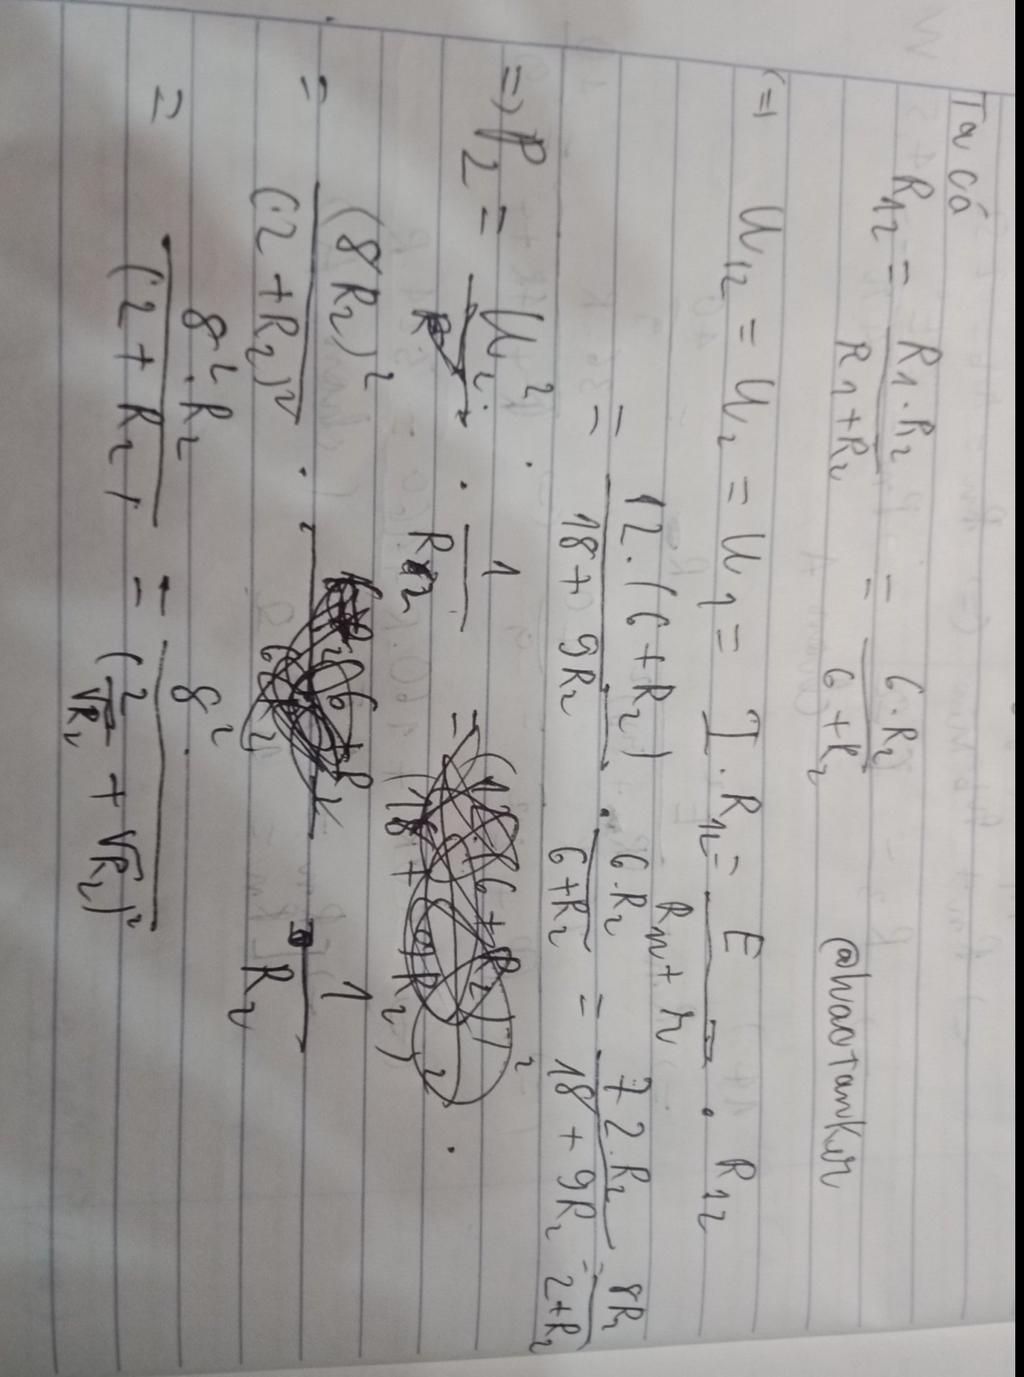 Ta có
R₁₂ = R₁.R₂ / R₁+R₂ = 6.R₂ / 6+R₂
@huaotanker
<=> U₁₂ = U₂ = U₁ = I.R₁₂ = E / R₁₂+r . R₁₂
= 12.(6+R₂) / 18+9R₂ . 6.R₂ / 6+R₂ = 72.R₂ / 18+9R₂ = 8R₂ / 2+R₂
=> P₂ = U₂² . 1 / R₂ =
= (8R₂)² / (2+R₂)² . 1 / R₂
= 8².R₂ / (2+R₂) = 8² / (2/√R₂ + √R₂)²